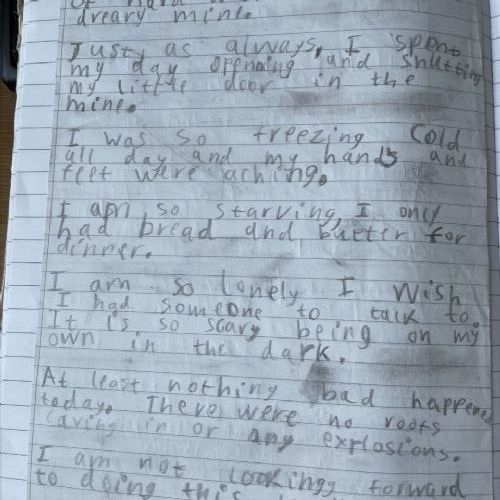 of hard
dreary mine.
Just as always, I spent
my day oppening and shutting
my little door in the
mine.
I was so freezing cold
all day and my hands and
feet were aching.
I am so starving, I only
had bread and butter for
dinner.
I am so lonely I wish
I had someone to talk to.
It is so scary being on my
own in the dark.
At least nothing bad happened
today. There were no roofs
caving in or any explosions.
I am not lookingy forward
to doing this